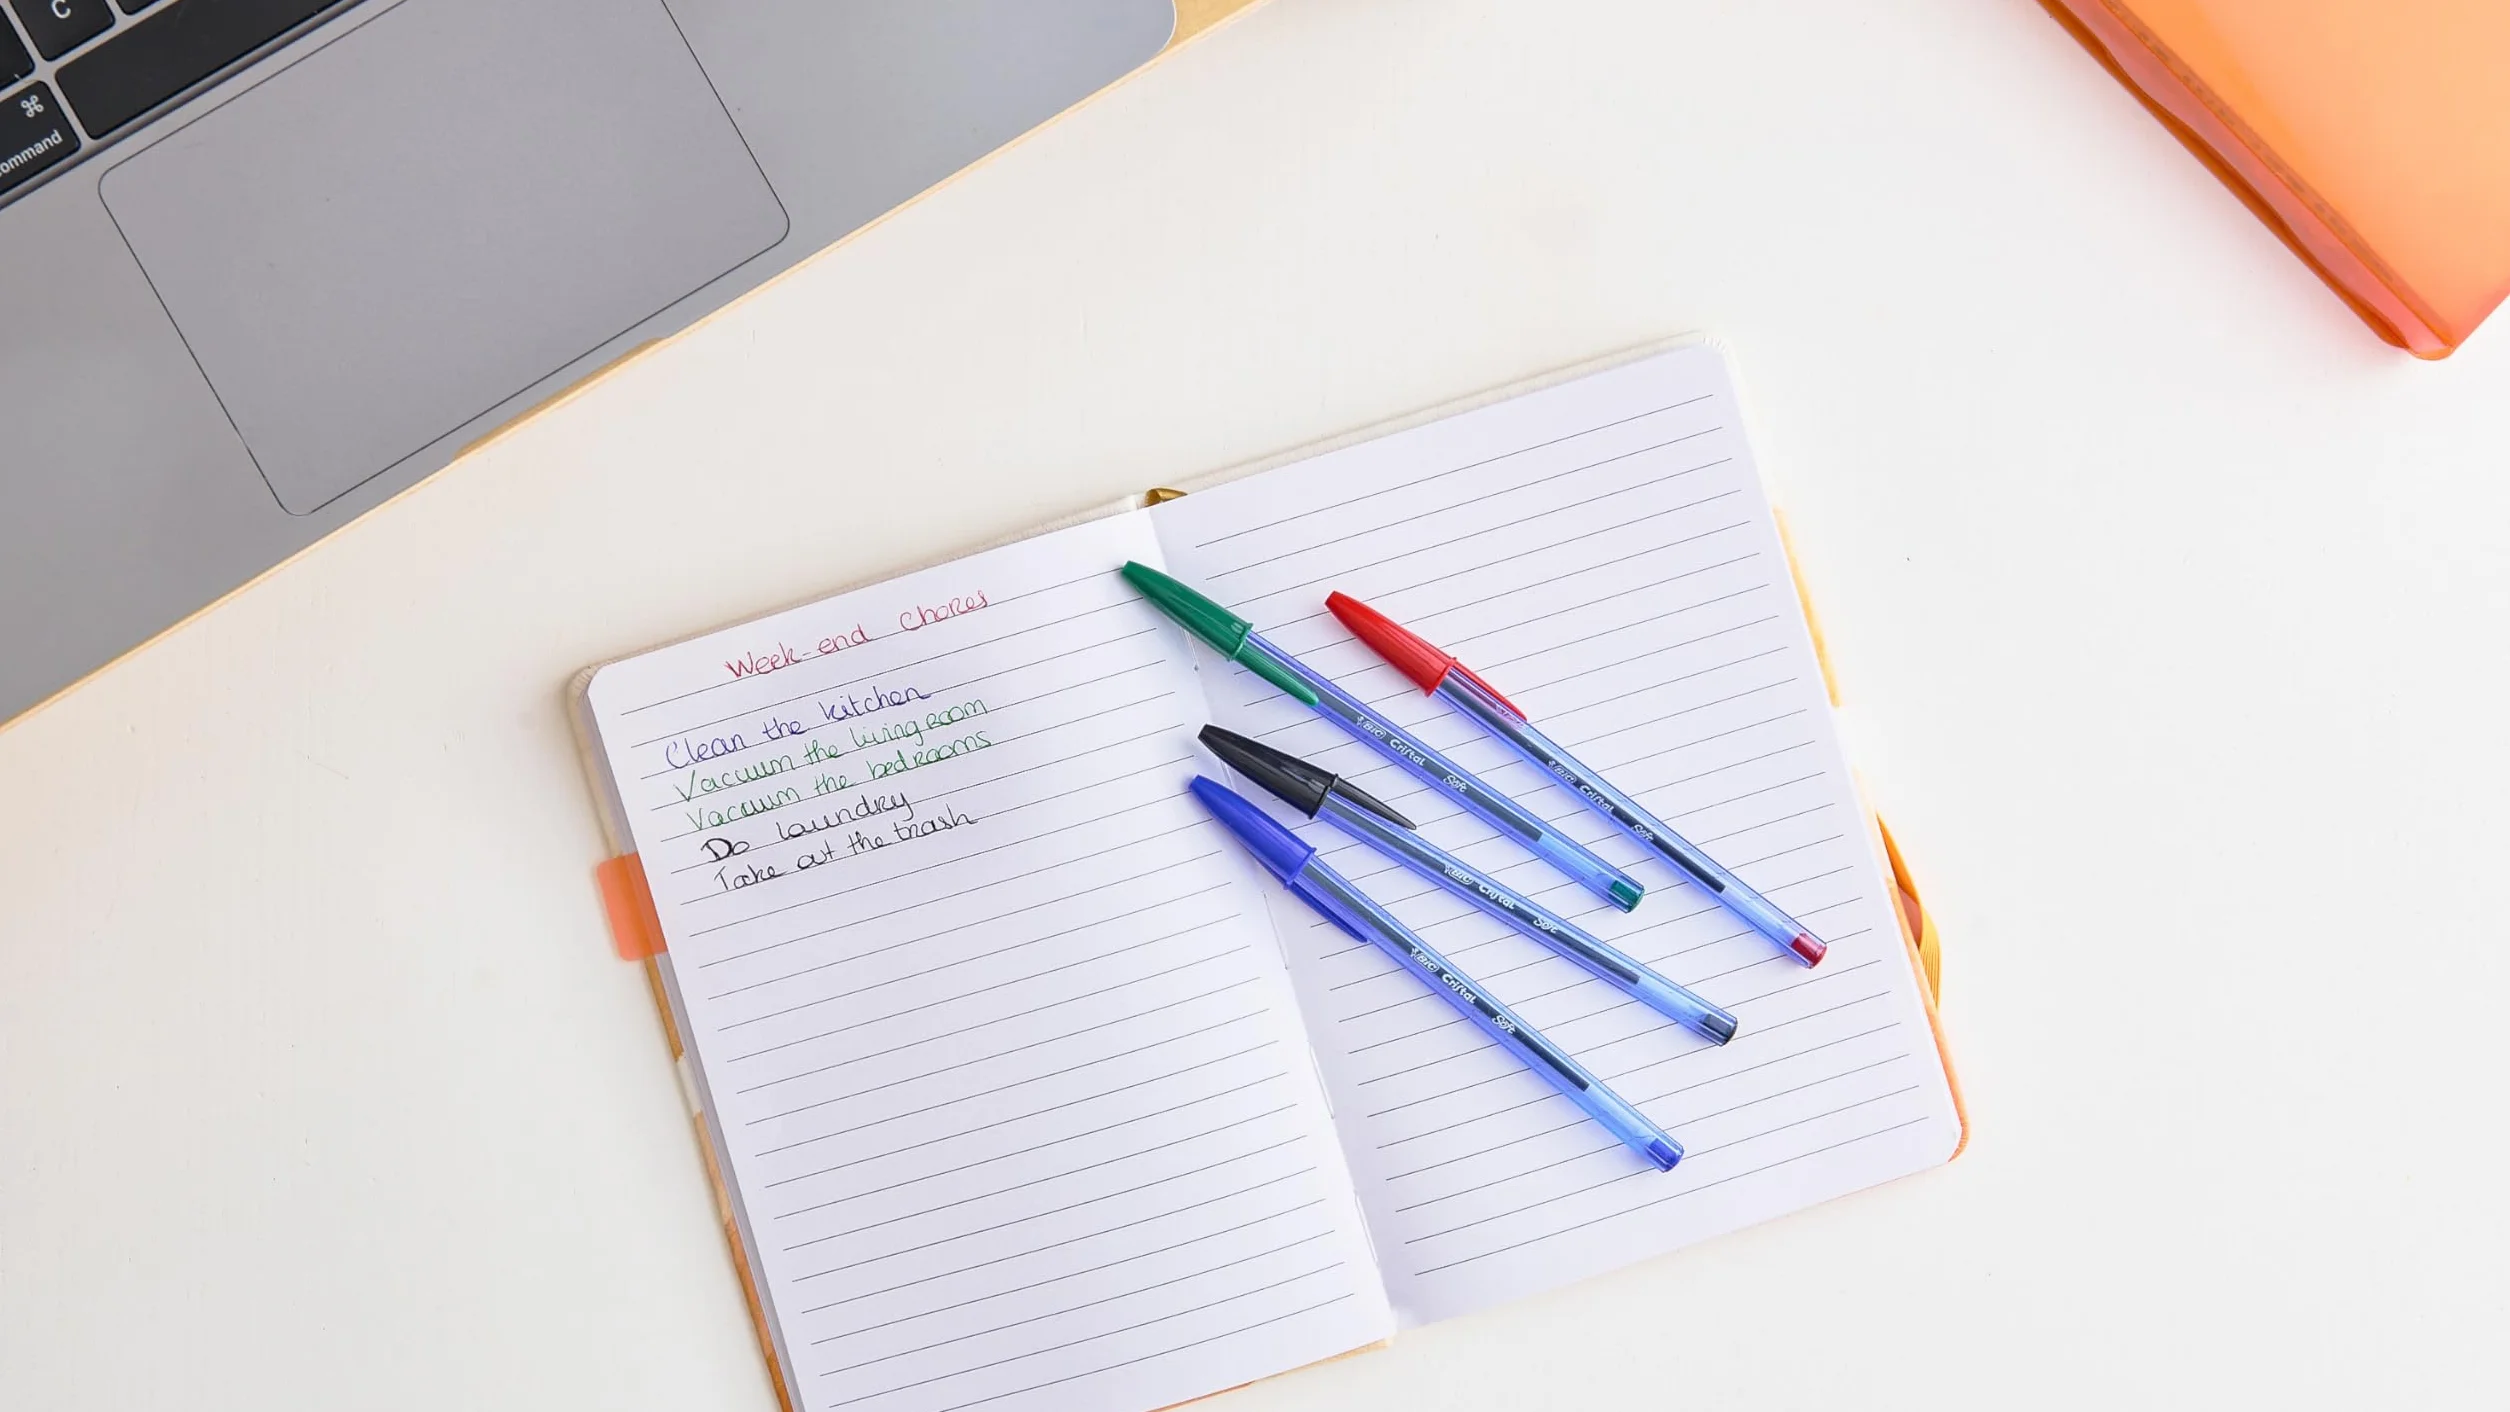 C
⌘
command
Week-end Chores
Clean the kitchen
Vacuum the living room
Vacuum the bedrooms
Do laundry
Take out the trash
BIC Cristal Soft
BIC Cristal Soft
BIC Cristal Soft
BIC Cristal Soft